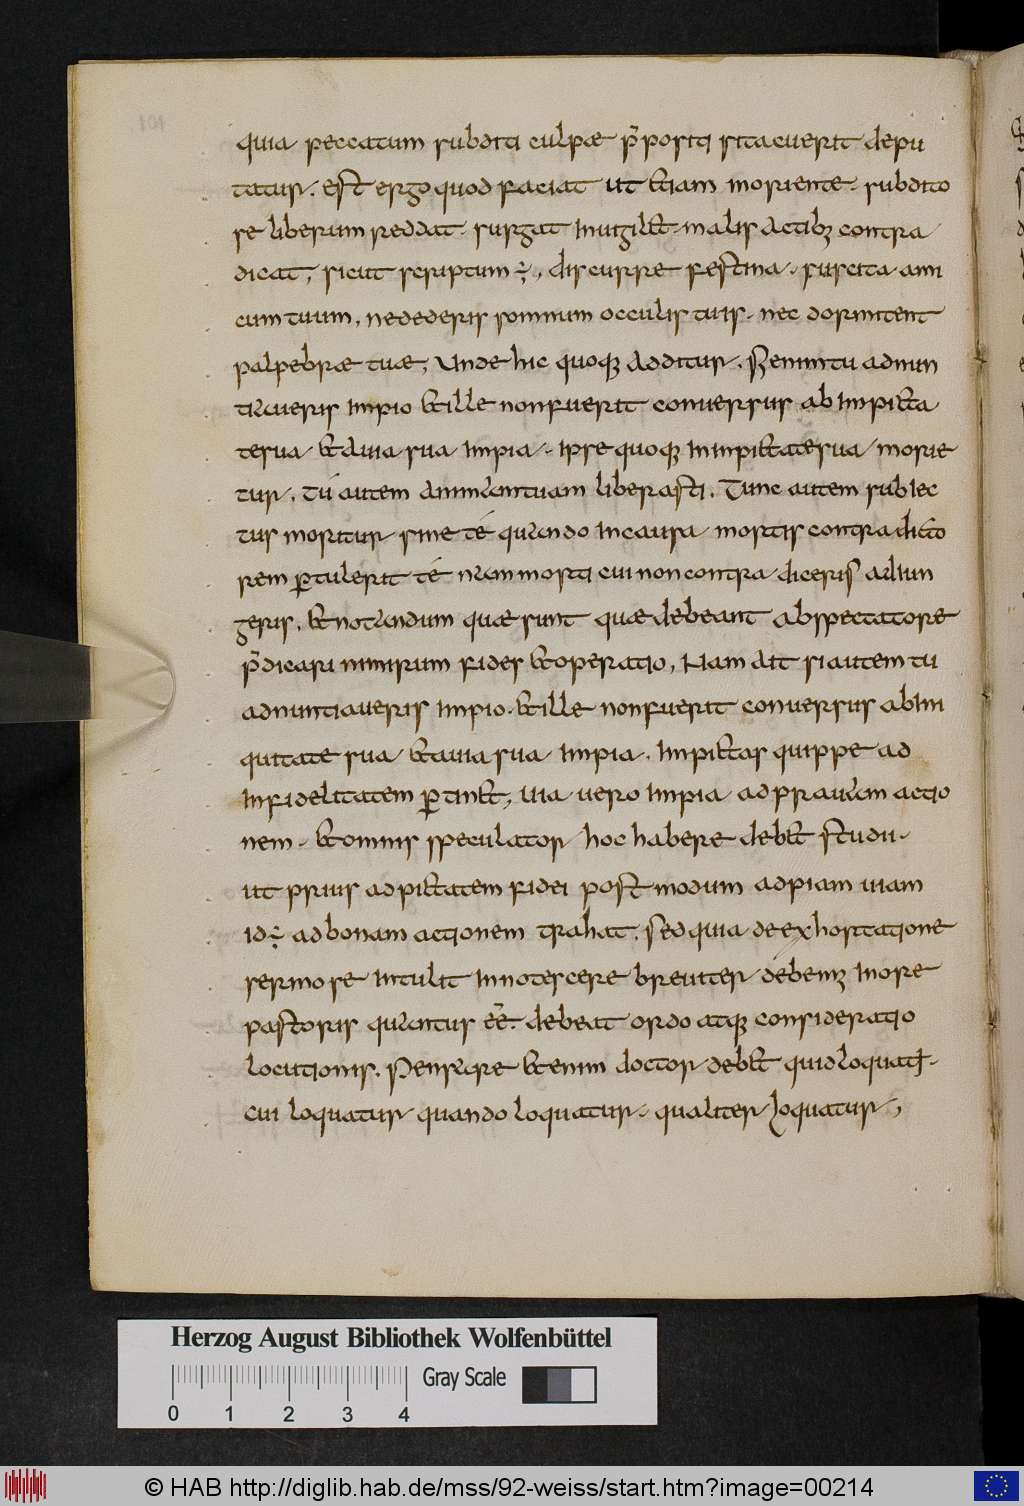 quia peccatum subditi culpae p̄positi si tacuerit depu
tatur. est ergo quod faciat ut etiam moriente. subdito
se liberum reddat. surgat inuigilet. malis actib; contra
dicat, sicut scriptum ÷, discurre festina. suscita ami
cum tuum, ne dederis somnum occulis tuis. nec dormitent
palpebrae tuae, Unde hic quoq; additur. Si enim tu adnun
tiaueris impio et ille non fuerit conuersus ab impieta
te sua et auia sua impia. ipse quoq; in inpietate sua morie
tur. tú autem animam tuam liberasti. Tunc autem subiec
tus moritur sine té quando in causa mortis contradicto
rem p̄tulerit té nam morti cui non contra diceris adiun
geris. et notandum quae sunt quae debeant ab spectatore
p̄dicari nimirum fides et operatio, Nam ait si autem tu
adnuntiaueris impio. et ille non fuerit conuersus ab ini
quitate sua et auia sua impia. Impietas quippe ad
infidelitatem p̄tinet, uia uero impia ad prauam actio
nem. et omnis speculator hoc habere debet studii.
ut prius ad pietatem fidei post modum ad piam uiam
id ÷ ad bonam actionem trahat. Sed quia de exhortatione
sermo se intulit innotescere breuiter debem; in ore
pastoris quantus eē. debeat ordo atq; consideratio
locutionis. Pensare et enim doctor debet quid loquat̄.
cui loquatur quando loquatur. qualiter loquatur,
Herzog August Bibliothek Wolfenbüttel
Gray Scale
0 1 2 3 4
© HAB http://diglib.hab.de/mss/92-weiss/start.htm?image=00214